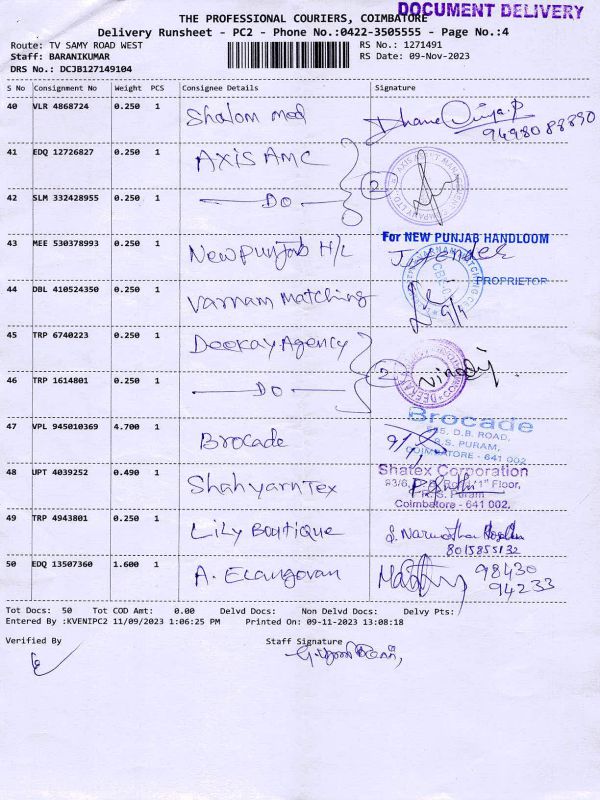 THE PROFESSIONAL COURIERS, COIMBATORE
DOCUMENT DELIVERY
Delivery Runsheet - PC2 - Phone No.:0422-3505555 - Page No.:4
Route: TV SAMY ROAD WEST RS No.: 1271491
Staff: BARANIKUMAR RS Date: 09-Nov-2023
DRS No.: DCJB127149104
S No Consignment No Weight PCS Consignee Details Signature
40 VLR 4868724 0.250 1 Shalom med
9498088890
41 EDQ 12726827 0.250 1 AXIS AMC
2
42 SLM 332428955 0.250 1 DO
For NEW PUNJAB HANDLOOM
43 MEE 530378993 0.250 1 New Punjab H/L
PROPRIETOR
44 DBL 410524350 0.250 1 Varnam Matching
9/11
45 TRP 6740223 0.250 1 Deekay Agency
2
46 TRP 1614801 0.250 1 DO
Brocade
D.B. ROAD,
R.S. PURAM,
COIMBATORE - 641 002
47 VPL 945010369 4.700 1 Brocade 9/11
Shatex Corporation
48 UPT 4039252 0.490 1 Shahyarntex
1st Floor,
R.S. Puram
Coimbatore - 641 002.
49 TRP 4943801 0.250 1 Lily Boutique
8015855132
50 EDQ 13507360 1.600 1 A. Elangovan 98430
94233
Tot Docs: 50 Tot COD Amt: 0.00 Delvd Docs: Non Delvd Docs: Delvy Pts:
Entered By :KVENIPC2 11/09/2023 1:06:25 PM Printed On: 09-11-2023 13:08:18
Verified By Staff Signature